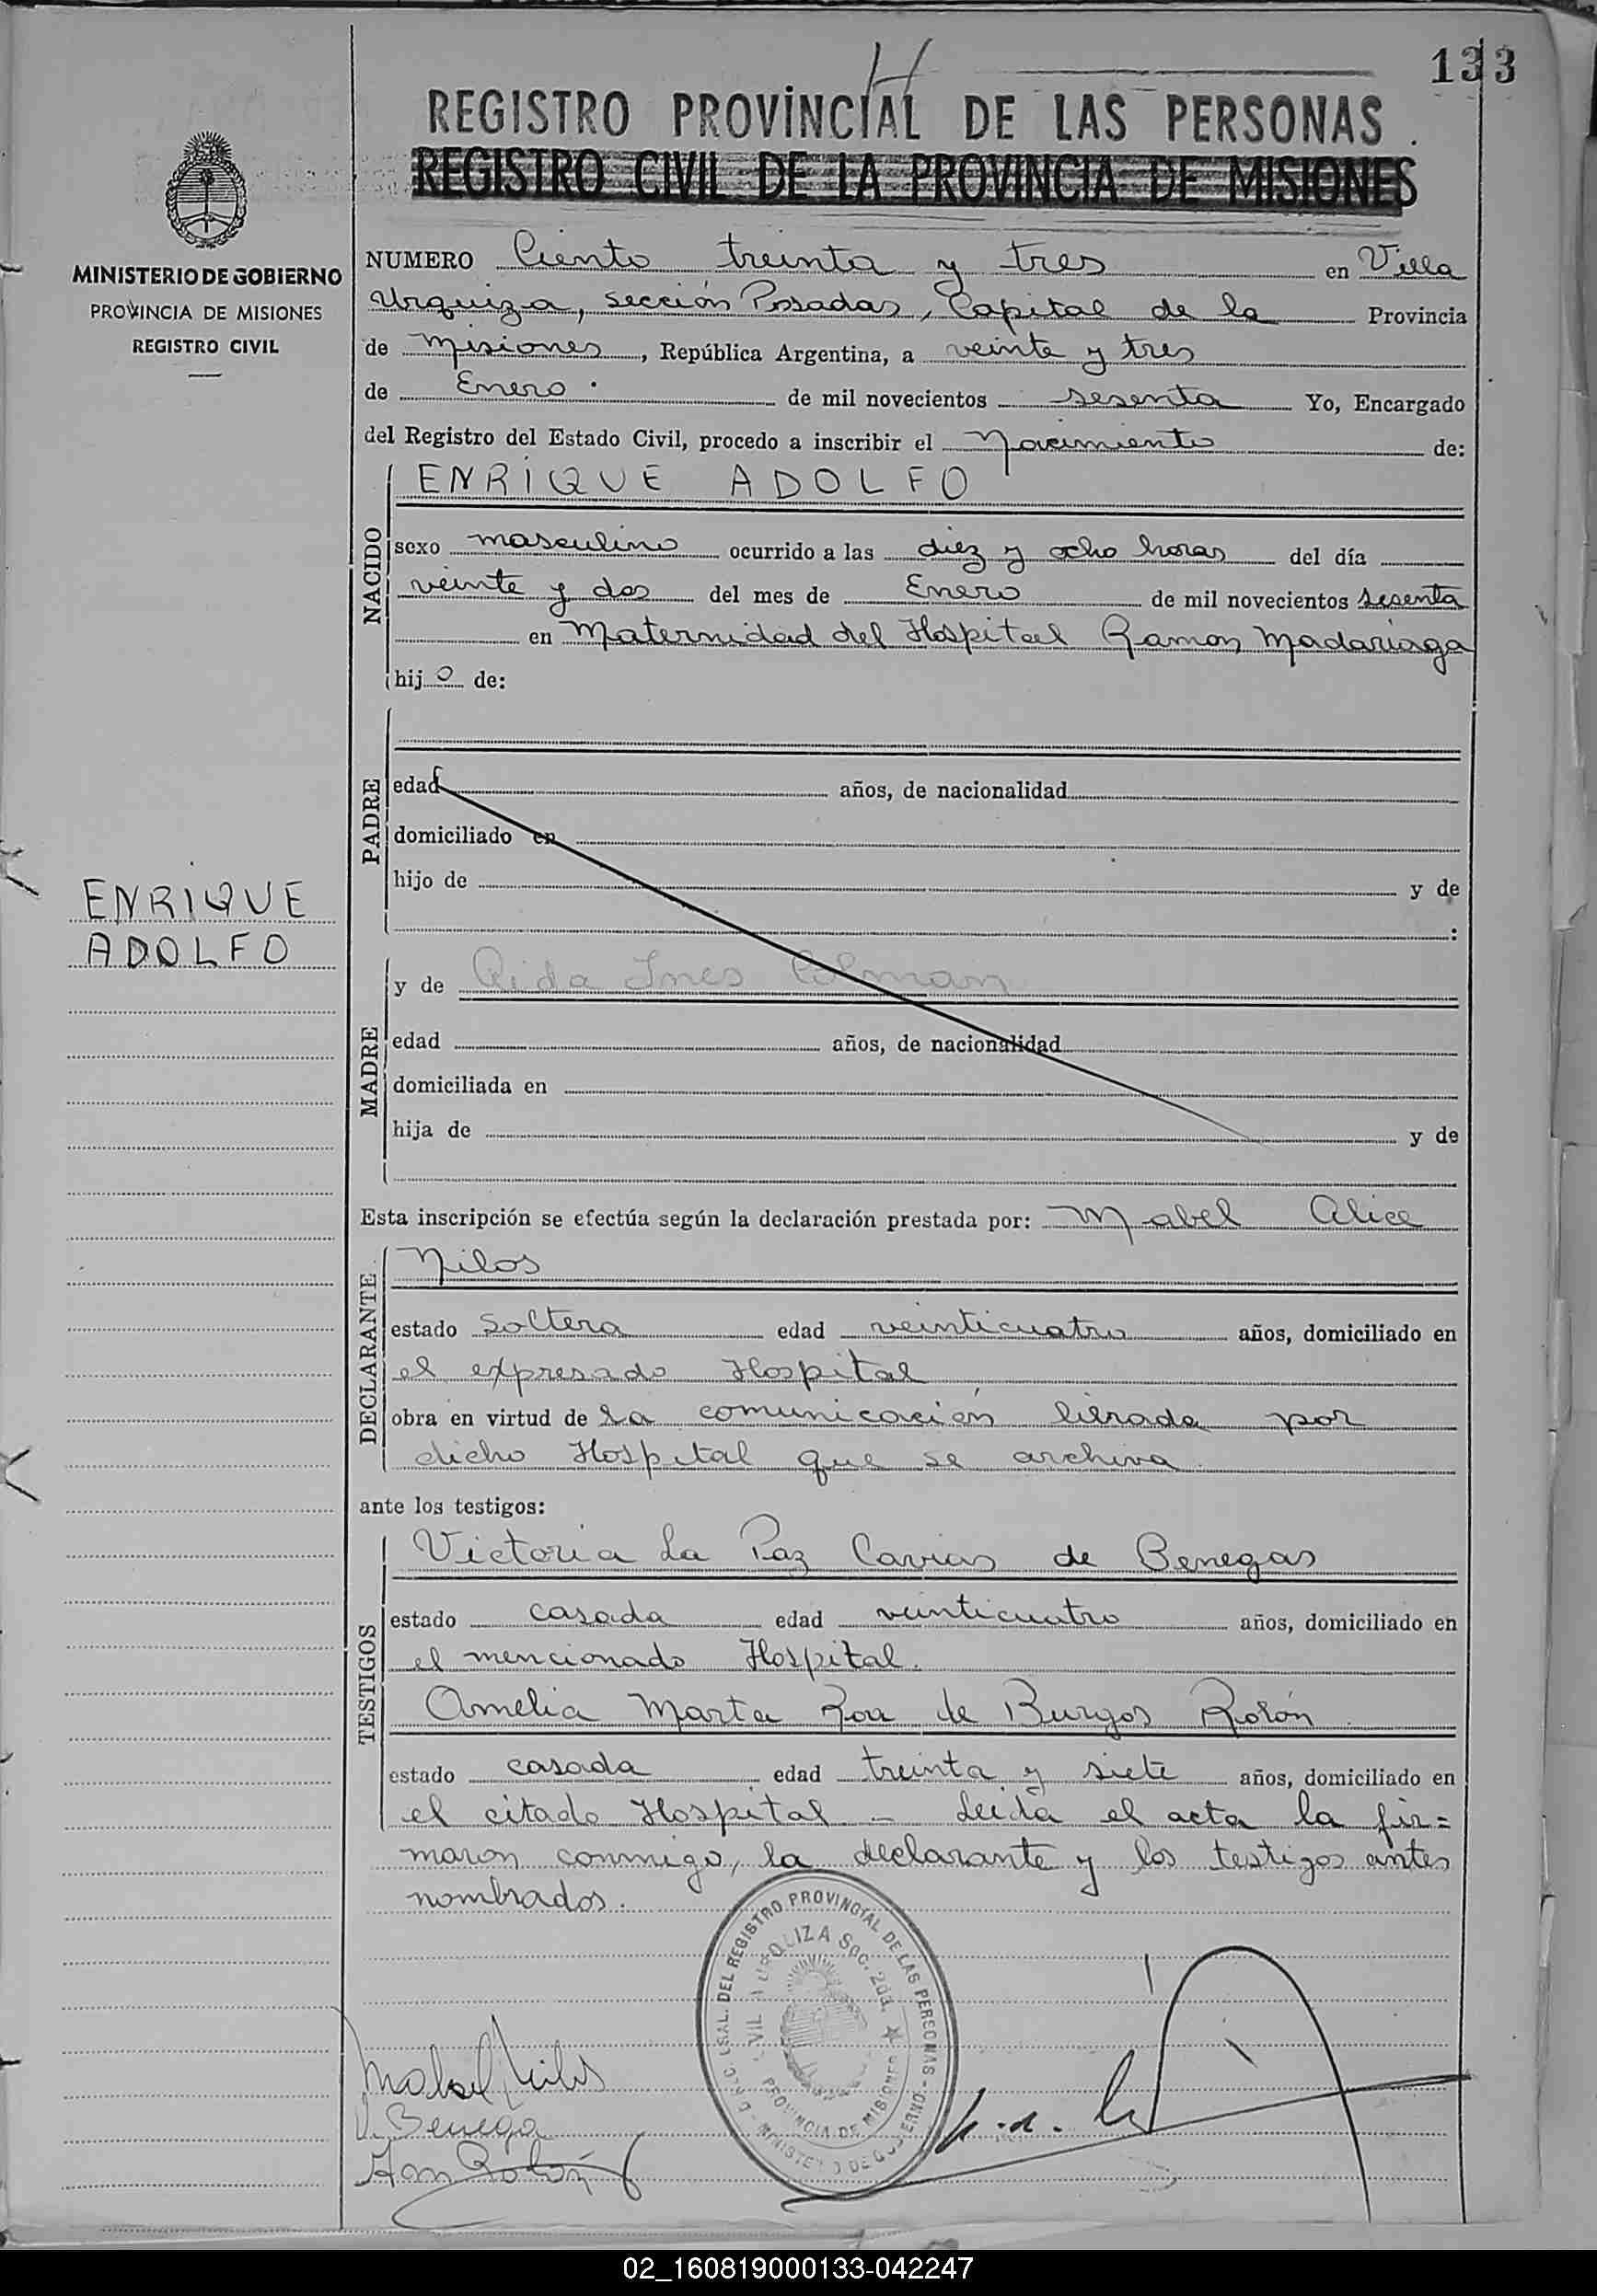 133
H
REGISTRO PROVINCIAL DE LAS PERSONAS
REGISTRO CIVIL DE LA PROVINCIA DE MISIONES
MINISTERIO DE GOBIERNO
PROVINCIA DE MISIONES
REGISTRO CIVIL
NUMERO Ciento treinta y tres en Villa
Urquiza, sección Posadas, Capital de la Provincia
de Misiones, República Argentina, a veinte y tres
de Enero de mil novecientos sesenta Yo, Encargado
del Registro del Estado Civil, procedo a inscribir el Nacimiento de:
NACIDO
ENRIQUE ADOLFO
sexo masculino ocurrido a las diez y ocho horas del día
veinte y dos del mes de Enero de mil novecientos sesenta
en Maternidad del Hospital Ramon Madariaga
hijo de:
PADRE
edad años, de nacionalidad
domiciliado en
hijo de y de
ENRIQUE
ADOLFO
MADRE
y de Aida Ines Colman
edad años, de nacionalidad
domiciliada en
hija de y de
Esta inscripción se efectúa según la declaración prestada por: Mabel Alice
DECLARANTE
Nilos
estado soltera edad veinticuatro años, domiciliado en
el expresado Hospital
obra en virtud de la comunicación librada por
dicho Hospital que se archiva
ante los testigos:
TESTIGOS
Victoria La Paz de Benegas
estado casada edad veinticuatro años, domiciliado en
el mencionado Hospital.
Amelia Marta Roa de Burgos Rolón
estado casada edad treinta y siete años, domiciliado en
el citado Hospital - Leida el acta la fir=
maron conmigo, la declarante y los testigos antes
nombrados.
DEL REGISTRO PROVINCIAL DE LAS PERSONAS - MINISTERIO DE GOBIERNO
URQUIZA Sec. 2da. PROVINCIA DE MISIONES
Mabel Nilos
V. Benega
Am Rolón
02_160819000133-042247